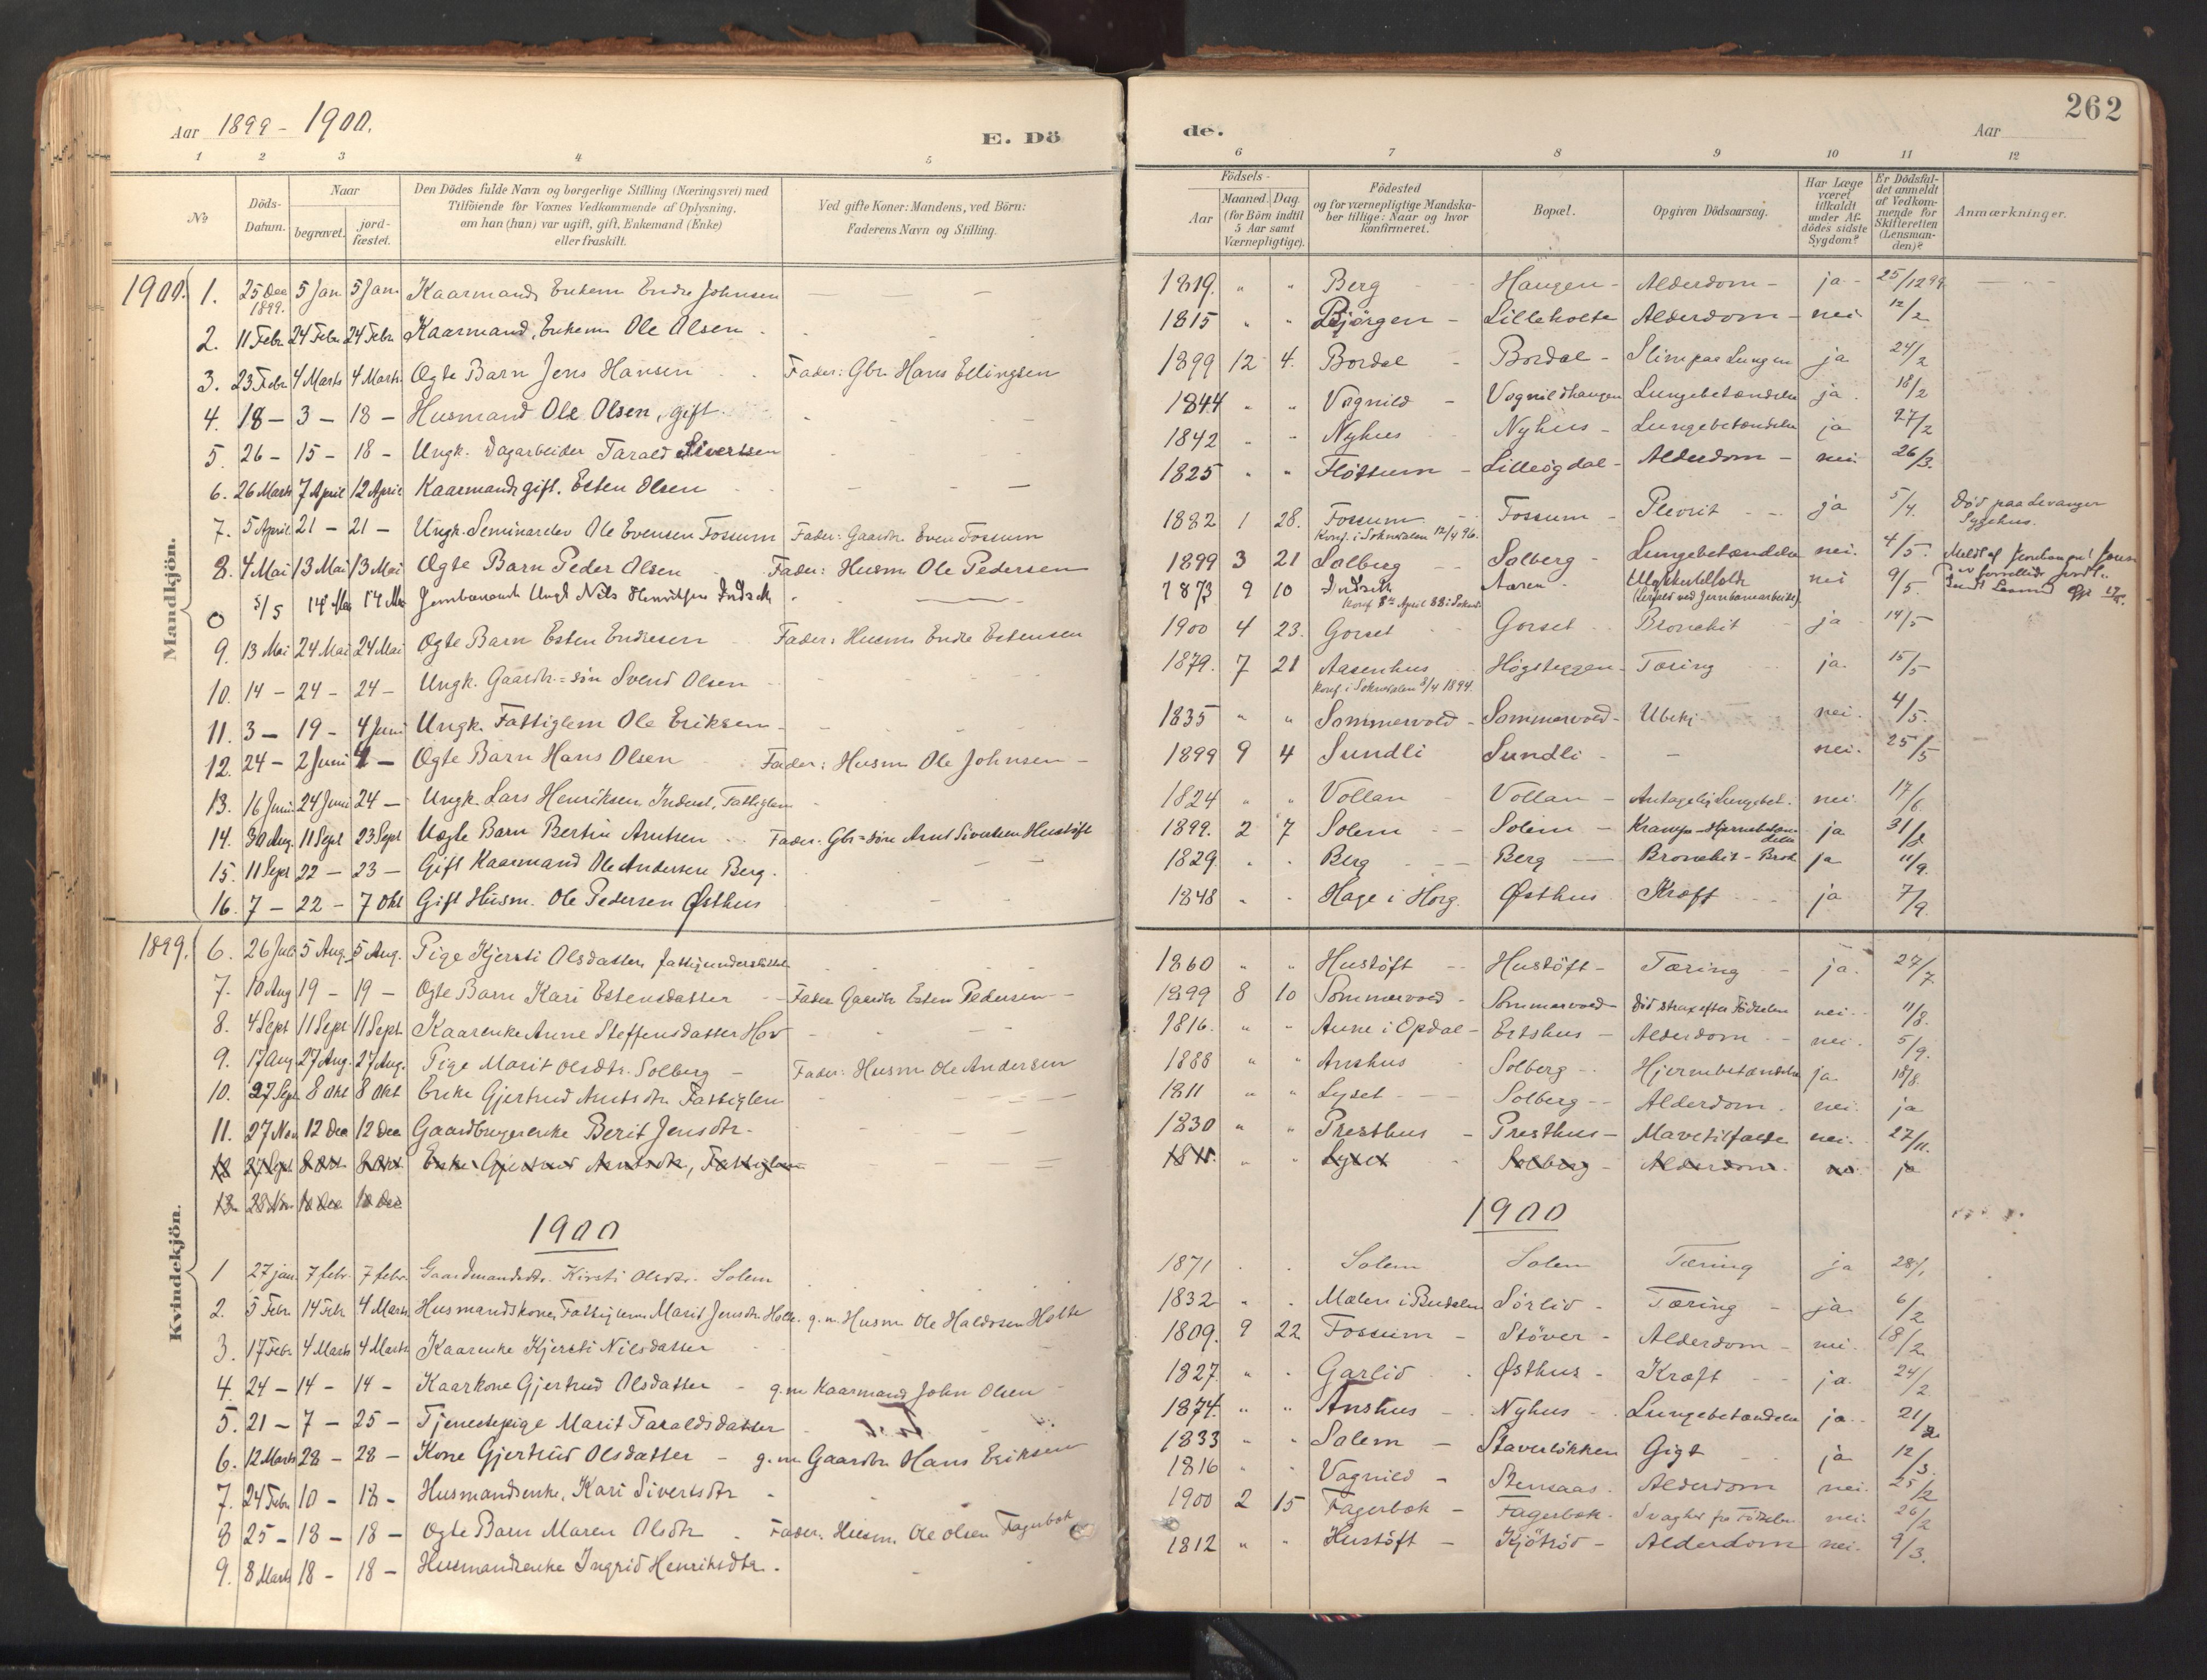 262
Aar 1899 - 1900.
E. Dö
de.
Aar
1 2 3 4 5 6 7 8 9 10 11 12
No
Döds-Datum.
Naar
begravet.
jord-fæstet.
Den Dödes fulde Navn og borgerlige Stilling (Næringsvei) med
Tilföiende for Voxnes Vedkommende af Oplysning,
om han (hun) var ugift, gift, Enkemand (Enke)
eller fraskilt.
Ved gifte Koner: Mandens, ved Börn:
Faderens Navn og Stilling.
Födsels-
Aar
Maaned. Dag.
(for Börn indtil
5 Aar samt
Værnepligtige).
Födested
og for værnepligtige Mandska-
ber tillige: Naar og hvor
konfirmeret.
Bopæl.
Opgiven Dödsaarsag.
Har Læge
været
tilkaldt
under Af-
dödes sidste
Sygdom?
Er Dödsfal-
det anmeldt
af Vedkom-
mende for
Skifteretten
(Lensman-
den)?
Anmærkninger.
Mandkjön.
1900. 1. 25 Dec 1899. 5 Jan 5 Jan Kaarmand, Enkem Endre Johnsen 1819. " " Berg Haugen - Alderdom - ja - 25/12 99
2. 11 Febr 24 Febr 24 Febr Kaarmand, Enkem Ole Olsen 1815 " " Bjørgen - Lilleholte Alderdom - nei 12/2
3. 23 Febr 4 Marts 4 Marts Ægte Barn Jens Hansen Fader: Gbr Hans Ellingsen 1899 12 4. Bordal Bordal - Slim paa Lungen ja 24/2
4. 18 - 3 - 18 - Husmand Ole Olsen, gift 1844 " " Vagnild - Vagnildhaugen Lungebetændelse ja. 18/2
5. 26 - 15 - 18 - Ungk. Dagarbeider Tarald Sivertsen 1842 " " Nyhus Nyhus - Lungebetændelse ja 27/2
6. 26 Marts 7 April 12 April Kaarmand gift. Esten Olsen 1825 " " Fløttum - Lilleøgdal - Alderdom - nei 26/3.
7. 5 April 21 - 21 - Ungk. Seminarelev Ole Evensen Fossum Fader: Gaardbr. Even Fossum 1882 1 28. Fossum Konf. i Soknedalen 12/4 96. Fossum - Plevrit ja 5/4. Død paa Levanger Sygehus.
8. 4 Mai 13 Mai 13 Mai Ægte Barn Peder Olsen Fader: Husm Ole Pedersen 1899 3 21 Solberg Solberg - Lungebetændelse nei. 4/5.
0 5/5 14 Mai 14 Mai Jernbanearb Ungk Nils Henriksen Indseth 1873 9 10 Indseth Aaren Ulykkestilfælde nei 9/5.
9. 13 Mai 24 Mai 24 Mai Ægte Barn Esten Endresen Fader: Husm Endre Estensen 1900 4 23. Gorset Gorset Bronchit ja 14/5
10. 14 - 24 - 24 - Ungk. Gaardbr.=søn Svend Olsen 1879. 7 21 Aasenhus Konf. i Soknedalen 8/4 1894. Høgsteggen - Tæring ja. 15/5
11. 3 - 19 - 4 Juni Ungk. Fattiglem Ole Eriksen - 1835 " " Sommervold - Sommervold - Ubekj. nei. 4/5.
12. 24 - 2 Juni 4 - Ægte Barn Hans Olsen Fader: Husm Ole Johnsen - 1899 9 4 Sundli Sundli - - nei. 25/5
13. 16 Juni 24 Juni 24 - Ungk. Lars Henriksen Indset, Fattiglem 1824 " " Vollan Vollan - Antagelig Lungebet. nei. 17/6.
14. 30 Aug. 11 Sept 23 Sept Uægte Barn Bertin Arntsen Fader. Gbr=søn Arnt Sivertsen Hustøft 1899. 2 7 Solem Solem - Krampe - Hjernebetændelse ja 31/8
15. 11 Sept 22 - 23 - Gift Kaarmand Ole Andersen Berg. 1829 . . Berg Berg Bronchit - Brok ja 11/9.
16. 7 - 22 - 7 Okt Gift Husm. Ole Pedersen Østhus 1848 . . Hage i Horg. Østhus Kræft ja 7/9.
Kvindekjön.
1899. 6. 26 Juli 5 Aug. 5 Aug. Pige Kjersti Olsdatter, fattigunderstøttet 1860 " " Hustøft Hustøft - Tæring - ja. 27/7.
7. 10 Aug 19 - 19 - Ægte Barn Kari Estensdatter Fader Gaardbr Esten Pedersen - 1899 8 10 Sommervold - Sommervold - Død strax efter Fødselen nei. 11/8.
8. 4 Sept 11 Sept 11 Sept. Kaarenke Anne Steffensdatter Hov 1816. " " Aune i Opdal - Ertshus - Alderdom - nei. 5/9.
9. 17 Aug 27 Aug. 27 Aug. Pige Marit Olsdtr. Solberg - Fader: Husm Ole Andersen 1888 " " Anshus Solberg - Hjernebetændelse ja. 18/8.
10. 27 Sept 8 Okt 8 Okt Enke Gjertrud Arntsdtr. Fattiglem 1811 " " Lyset - Solberg - Alderdom. nei. ja
11. 27 Nov 12 Dec 12 Dec Gaardbrugerenke Berit Jensdtr. 1830 " " Presthus - Presthus - Mavetilfælde nei. 27/11.
12 27 Sept 8 Okt 8 Okt Enke Gjertrud Arntsdtr, Fattiglem 1811. " " Lyset Solberg - Alderdom. nei ja
13. 28 Nov 10 Dec 10 Dec
1900
1900
1 27 jan. 7 febr. 7 febr. Gaardmandsdtr. Kirsti Olsdtr. Solem 1871 . . Solem Solem Tæring ja 28/1
2. 5 Febr 14 Feb. 4 Marts Husmandskone, Fattiglem Marit Jensdtr. Holte. g.m. Husm Ole Haldosen Holte 1832 " . Mælen i Budalen Sørlid - Tæring - ja 6/2
3. 17 Febr 4 Marts 4 Marts Kaarenke Kjersti Nilsdatter 1809. 9 22 Fossum - Støver - Alderdom - nei. 18/2.
4. 24 - 14 - 14 - Kaarkone Gjertrud Olsdatter - g.m Kaarmand John Olsen 1827. " " Garlid Østhus - Kræft ja. 24/2
5. 21 - 7 - 25 - Tjenestepige Marit Taraldsdatter 1874. " " Anshus - Nyhus Lungebetændelse ja. 21/2
6. 12 Marts 28 - 28 - Kone Gjertrud Olsdatter - g.m Gaardbr Hans Eriksen 1833 " " Solem - Staverløkken Gigt ja 12/3.
7. 24 Febr 10 - 18 - Husmandsenke, Kari Sivertsdtr 1816 " " Vagnild - Stensaas. Alderdom nei. 25/2
8 25 - 18 - 18 - Ægte Barn Maren Olsdtr Fader. Husm. Ole Olsen Fagerbæk 1900 2 15 Fagerbæk - Fagerbæk - Svaghed fra Fødselen nei. 26/2
9. 8 Marts 18 - 18 - Husmandsenke Ingrid Henriksdtr. 1812 " " Hustøft - Kjøtrød - Alderdom nei. 9/3.